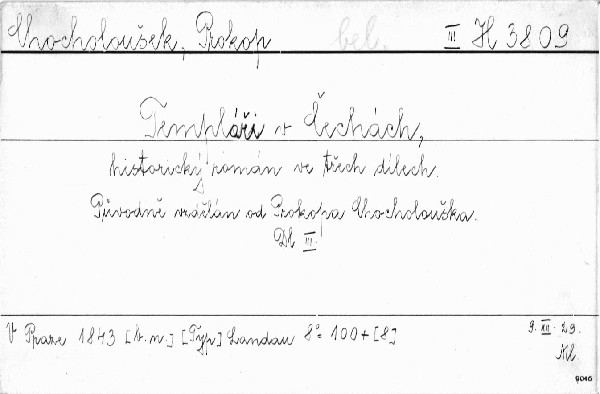 Chocholoušek, Prokop bel. III H 3809
Templáři v Čechách,
historický román ve třech dílech.
Původně vzdělán od Prokopa Chocholouška.
Díl III.
V Praze 1843 [b.n.] [Typ] Landau 8° 100+[8] 9.XII.29.
Kl.
9046